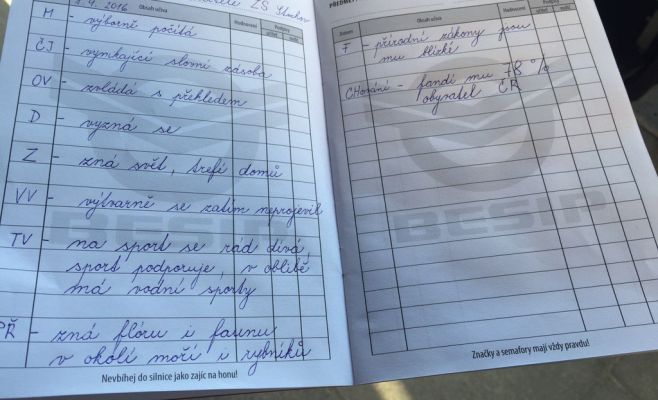 4. 2016 Obsah učiva Hodnocení Podpisy
učitel rodič
M - výborně počítá
ČJ - vynikající slovní zásoba
OV - zvládá s přehledem
D - vyzná se
Z - zná svět, trefí domů
VV - výtvarně se zatím neprojevil
TV - na sport se rád dívá,
sport podporuje, v oblibě
má vodní sporty
PŘ - zná flóru i faunu
v okolí moří i rybníků
Nevbíhej do silnice jako zajíc na honu!
Datum Obsah učiva Hodnocení Podpisy
učitel rodič
F - přírodní zákony jsou
mu blízké
CHování - fandí mu 78 %
obyvatel ČR
BESIP
BESIP
Značky a semafory mají vždy pravdu!